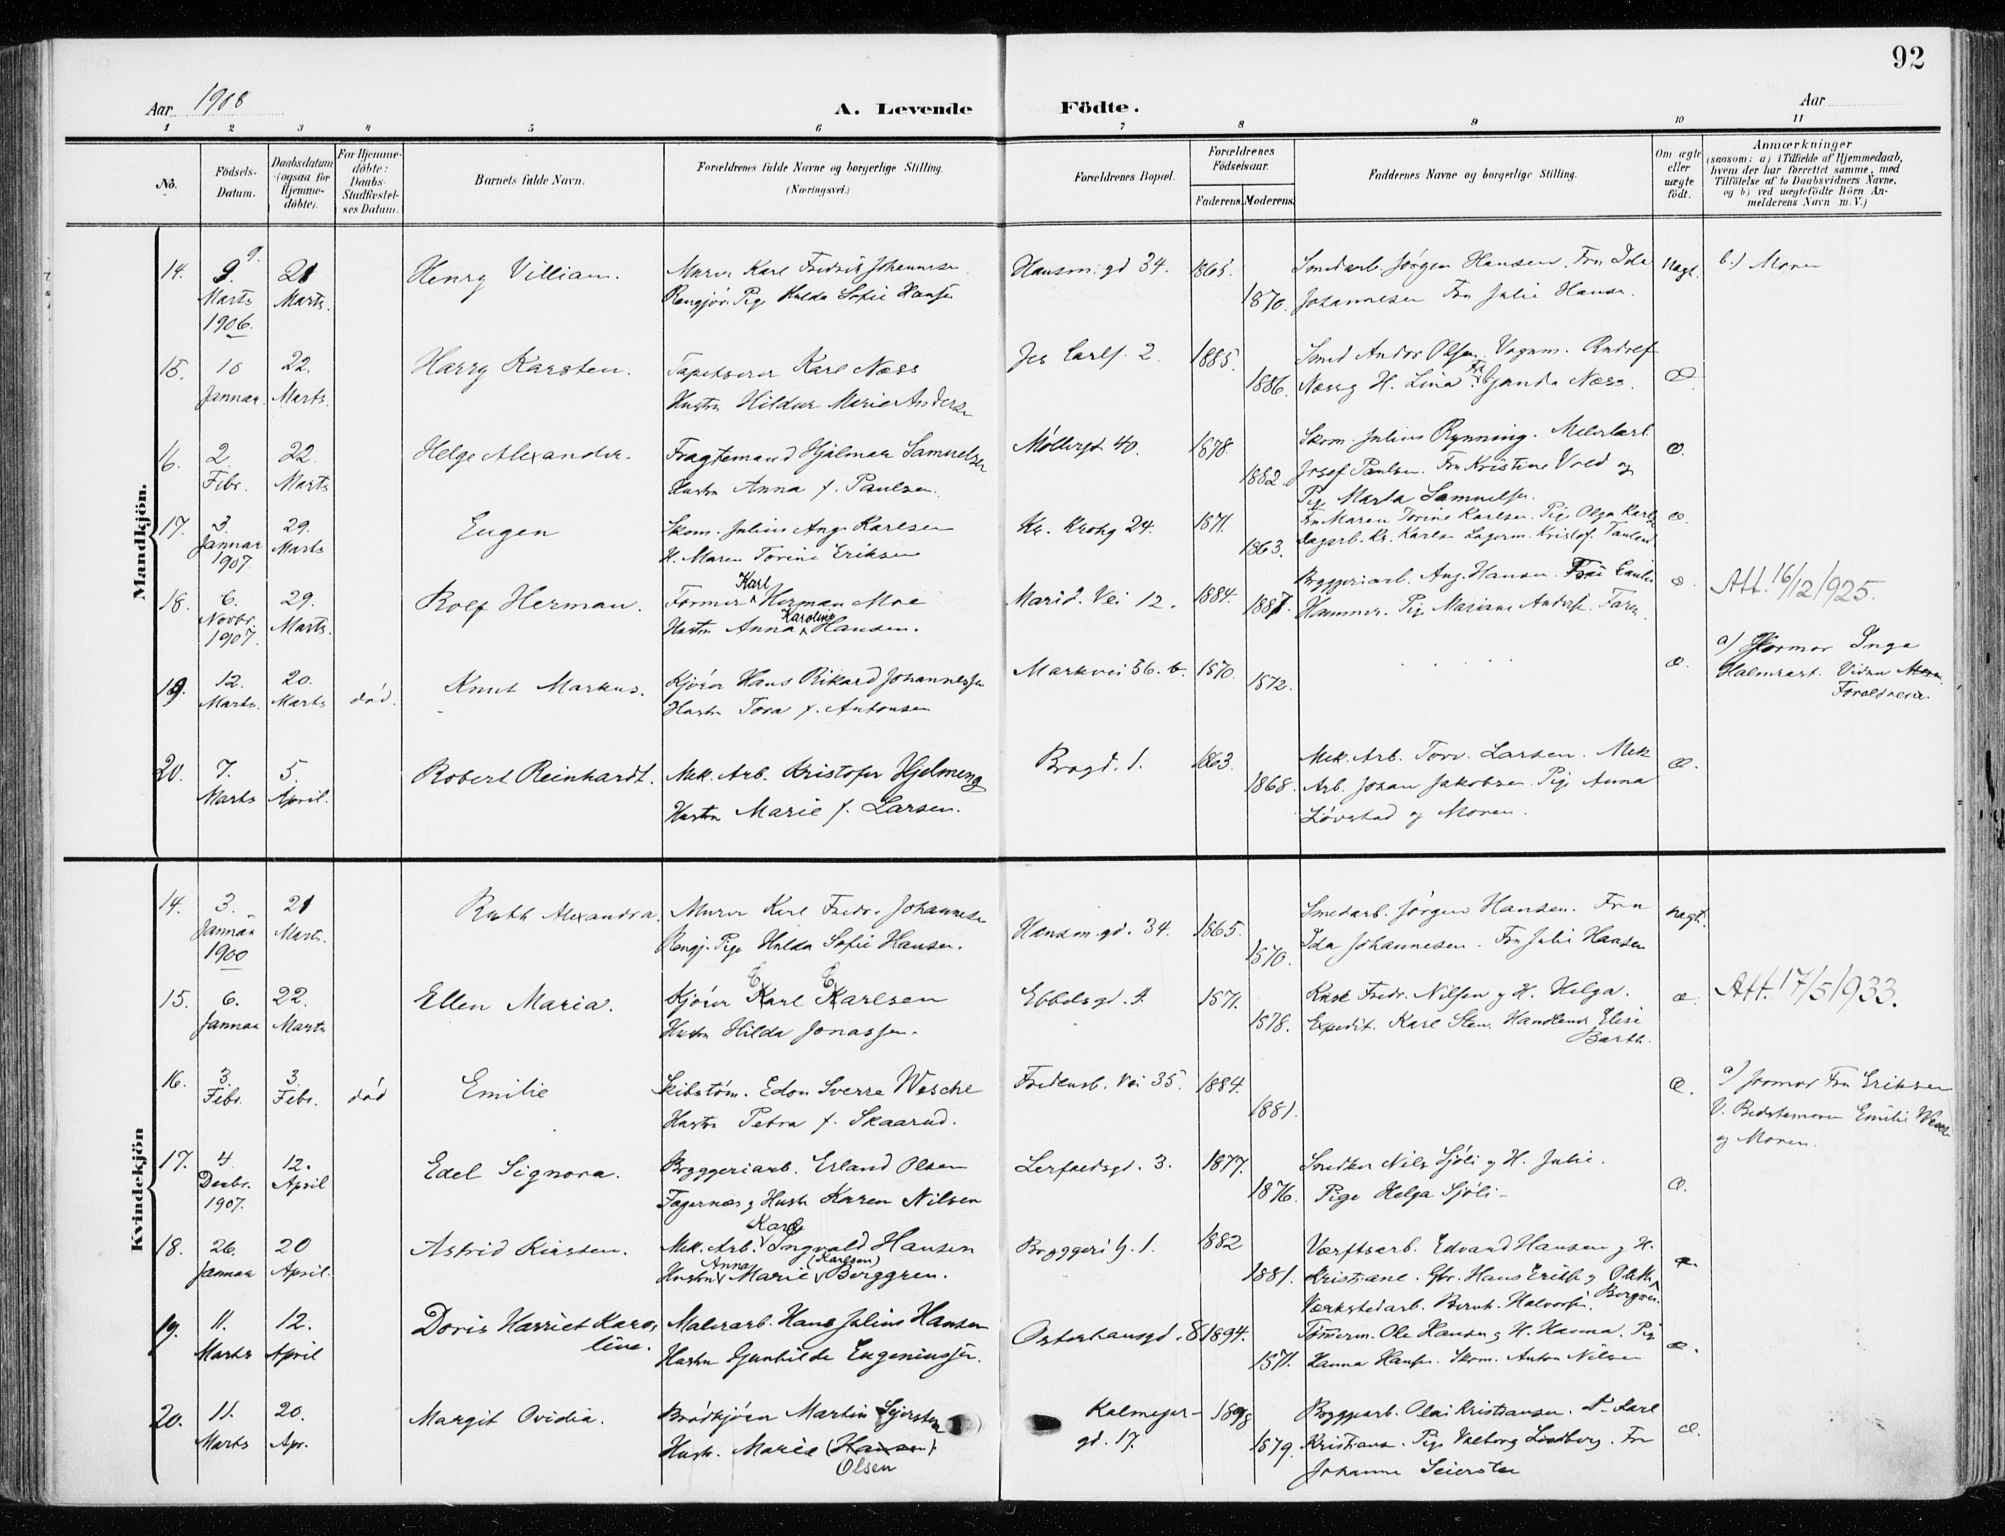 92
Aar 1908
A. Levende Födte.
Aar
1 2 3 4 5 6 7 8 9 10 11
No.
Födsels-Datum.
Daabsdatum (ogsaa for Hjemme-döbte).
For Hjemme-döbte: Daabs-Stadfæstel-ses Datum.
Barnets fulde Navn.
Forældrenes fulde Navne og borgerlige Stilling.
(Næringsvei.)
Forældrenes Bopæl.
Forældrenes Födselsaar.
Faderens. Moderens.
Faddernes Navne og borgerlige Stilling.
Om ægte eller uægte födt.
Anmærkninger
(saasom: a) i Tilfælde af Hjemmedaab, hvem der har forrettet samme, med Tilföielse af to Daabsvidners Navne, og b) ved uægtefödte Börn An-melderens Navn m. V.)
Mandkjön.
14. 9. 21 Henry Villiam. Murer Karl Fredrik Johannesen Hausm. gd 34. 1865. Smedarb. Jörgen Hansen. Fru Ida Uægt. b.) Moren
Marts Marts. Rengjör. Pige Hulda Sofie Hansen 1870. Johannesen Fru Julie Hansen.
1906.
15. 10 22. Harry Karsten. Tapetserer Karl Næss 2. 1885. Smed Andor Olsen.
Januar. Marts. Hustru Hildur Marie Andersen 1886. Næss H. Lina Næss. Æ
16. 2. 22. Helge Alexander. Fragtemand Hjalmar Samuelsen Möllergt 40. 1878. Skom. Julius Rynning. æ.
Febr. Marts Hustru Anna f. Paulsen. 1882. Josef Paulsen. Fru Kristine Vold og
Pige Marta Samuelsen.
17. 3. 29. Eugen Skom. Julius Aug. Karlsen Kr. Krohg 24. 1871. Fru Maren Torine Karlsen. Pige Olga Karlsen æ.
Januar Marts H. Maren Torine Eriksen 1863. Dagarb. Kr. Karlsen Lagerm. Kristof.
1907
18. 6. 29. Rolf Herman. Former Karl Herman Moe Marid. Vei 12. 1884. Bryggeriarb. Aug. Hansen. Fru æ. Att. 16/12/925.
Novbr. Marts. Hustru Anna Karoline Hansen. 1887. Hammer. Pige Mariane Anders.
1907.
19 12. 20. Knut Markus. Kjörer Hans Rikard Johannessen Markvei 56. b. 1870. æ. a) Jormor Inga
Marts. Marts död. Hustru Tora f. Antonsen 1872. Forældrene.
20. 7. 5. Robert Reinhardt. Mek. Arb. Kristofer Hjelmeng Brogd. 1. 1863. Mek. Arb. Torv. Larsen. Mek æ.
Marts April. Hustru Marie f. Larsen. 1868. Arb. Johan Jakobsen. Pige Anna
Lövstad og Moren.
Kvindekjön
14. 3. 21 Ruth Alexandra. Murer Karl Fredr. Johannesen Hausm. gd. 34. 1865. Smedarb. Jörgen Hansen. Fru uægt.
Januar Marts. Rengj. Pige Hulda Sofie Hansen. 1870. Ida Johannesen. Fru Julie Hansen
1900
15. 6. 22. Ellen Maria. Kjörer Carl Carlsen Ebbelsgd. 1. 1871. Fredr. Nilsen og H. Helga. æ. Att. 17/5/933.
Januar Marts Hustru Hilda Jonassen. 1878. Expedit. Karl Sten. Elise
Barth.
16. 3. 3. Emilie Skibstöm. Edon Sverre Wesche Fredensb. Vei 35. 1884. æ. a) Jormor Fru Eriksen
Febr. Febr. död Hustru Petra f. Skaarud. 1881. V. Bedstemoren Emilie Wesche
og Moren.
17. 4 12. Edel Signora. Bryggeriarb. Erland Olsen Lerfosdsgd. 3. 1877. Snedker Nils Sjöli og H. Julie.
Decbr. April Fagernæs og Hustru Karen Nilsen 1876. Pige Helga Sjöli. æ.
1907.
18. 26. 20 Astrid Kirsten. Mek. Arb. Karl Ingvald Hansen Bryggeri g. 1. 1882 Værftsarb. Edvard Hansen og H. æ.
Januar April. Hustru Anna Marie (Karlsen) Berggren. 1881. Kristiane.
Værkstedarb. Bernh. Halvorsen. Berggren.
19. 11. 12. Doris Harriet Karo- Malerarb. Hans Julius Hansen Osterhausgd. 8 1894. Tömmerm. Ole Hansen og H. Hanna. Pige æ.
Marts April line. Hustru Gunhilde Eugeniussen. 1871. Hanna Hansen. Skom. Anton Nilsen
20. 11. 20. Margit Ovidia. Brödkjörer Martin Sejersten Kalmeyer- 1878 Bryggarb. Olai Kristiansen. æ.
Marts Apr. Hustr. Marie (Hansen) gd. 17. 1879. Kristians. Pige Valborg Lindberg. Fru
Olsen Johanne Seiersten